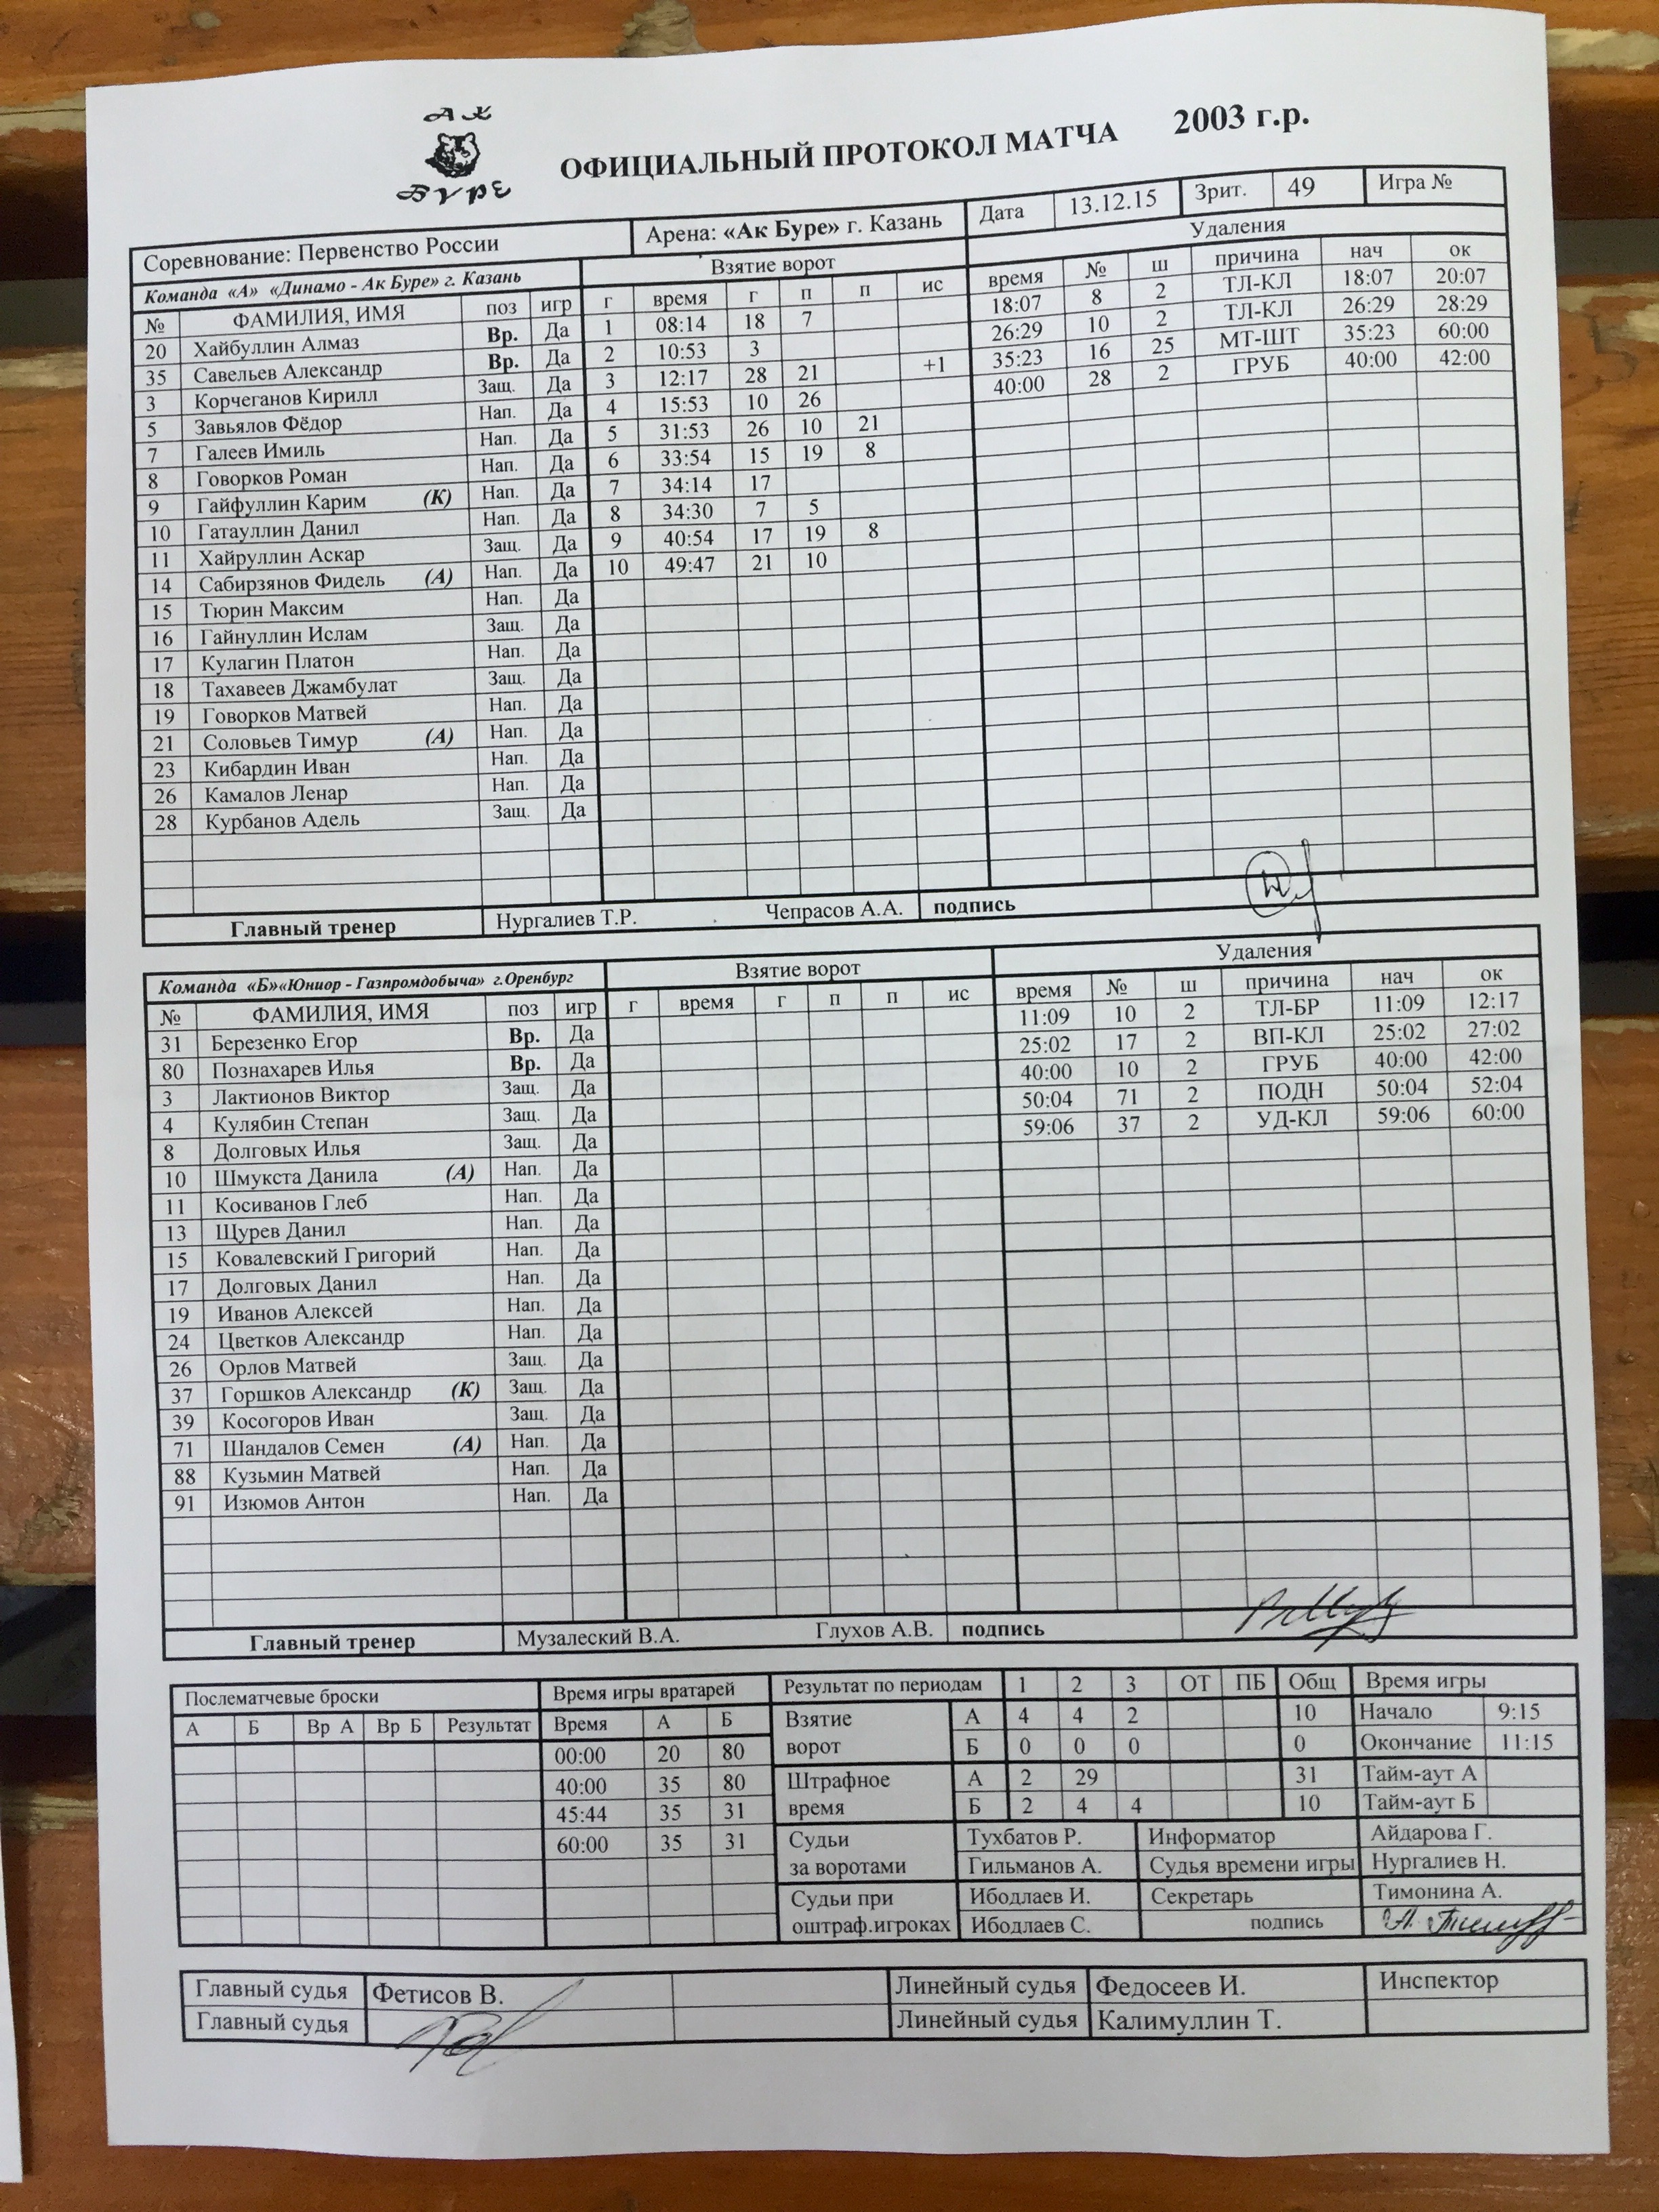 АК
БУРЕ
ОФИЦИАЛЬНЫЙ ПРОТОКОЛ МАТЧА 2003 г.р.
Соревнование: Первенство России Арена: «Ак Буре» г. Казань Дата 13.12.15 Зрит. 49 Игра №
Команда «А» «Динамо - Ак Буре» г. Казань Взятие ворот Удаления
№ ФАМИЛИЯ, ИМЯ поз игр г время г п п ис время № ш причина нач ок
20 Хайбуллин Алмаз Вр. Да 1 08:14 18 7 18:07 8 2 ТЛ-КЛ 18:07 20:07
35 Савельев Александр Вр. Да 2 10:53 3 26:29 10 2 ТЛ-КЛ 26:29 28:29
3 Корчеганов Кирилл Защ. Да 3 12:17 28 21 +1 35:23 16 25 МТ-ШТ 35:23 60:00
5 Завьялов Фёдор Нап. Да 4 15:53 10 26 40:00 28 2 ГРУБ 40:00 42:00
7 Галеев Имиль Нап. Да 5 31:53 26 10 21
8 Говорков Роман Нап. Да 6 33:54 15 19 8
9 Гайфуллин Карим (К) Нап. Да 7 34:14 17
10 Гатауллин Данил Нап. Да 8 34:30 7 5
11 Хайруллин Аскар Защ. Да 9 40:54 17 19 8
14 Сабирзянов Фидель (А) Нап. Да 10 49:47 21 10
15 Тюрин Максим Нап. Да
16 Гайнуллин Ислам Защ. Да
17 Кулагин Платон Нап. Да
18 Тахавеев Джамбулат Защ. Да
19 Говорков Матвей Нап. Да
21 Соловьев Тимур (А) Нап. Да
23 Кибардин Иван Нап. Да
26 Камалов Ленар Нап. Да
28 Курбанов Адель Защ. Да
Главный тренер Нургалиев Т.Р. Чепрасов А.А. подпись
Команда «Б»«Юниор - Газпромдобыча» г.Оренбург Взятие ворот Удаления
№ ФАМИЛИЯ, ИМЯ поз игр г время г п п ис время № ш причина нач ок
31 Березенко Егор Вр. Да 11:09 10 2 ТЛ-БР 11:09 12:17
80 Познахарев Илья Вр. Да 25:02 17 2 ВП-КЛ 25:02 27:02
3 Лактионов Виктор Защ. Да 40:00 10 2 ГРУБ 40:00 42:00
4 Кулябин Степан Защ. Да 50:04 71 2 ПОДН 50:04 52:04
8 Долговых Илья Защ. Да 59:06 37 2 УД-КЛ 59:06 60:00
10 Шмукста Данила (А) Нап. Да
11 Косиванов Глеб Нап. Да
13 Щурев Данил Нап. Да
15 Ковалевский Григорий Нап. Да
17 Долговых Данил Нап. Да
19 Иванов Алексей Нап. Да
24 Цветков Александр Нап. Да
26 Орлов Матвей Защ. Да
37 Горшков Александр (К) Защ. Да
39 Косогоров Иван Защ. Да
71 Шандалов Семен (А) Нап. Да
88 Кузьмин Матвей Нап. Да
91 Изюмов Антон Нап. Да
Главный тренер Музалеский В.А. Глухов А.В. подпись
Послематчевые броски Время игры вратарей Результат по периодам 1 2 3 ОТ ПБ Общ Время игры
А Б Вр А Вр Б Результат Время А Б Взятие ворот А 4 4 2 10 Начало 9:15
00:00 20 80 Б 0 0 0 0 Окончание 11:15
40:00 35 80 Штрафное время А 2 29 31 Тайм-аут А
45:44 35 31 Б 2 4 4 10 Тайм-аут Б
60:00 35 31 Судьи за воротами Тухбатов Р. Информатор Айдарова Г.
Гильманов А. Судья времени игры Нургалиев Н.
Судьи при оштраф.игроках Ибодлаев И. Секретарь Тимонина А.
Ибодлаев С. подпись
Главный судья Фетисов В. Линейный судья Федосеев И. Инспектор
Главный судья Линейный судья Калимуллин Т.